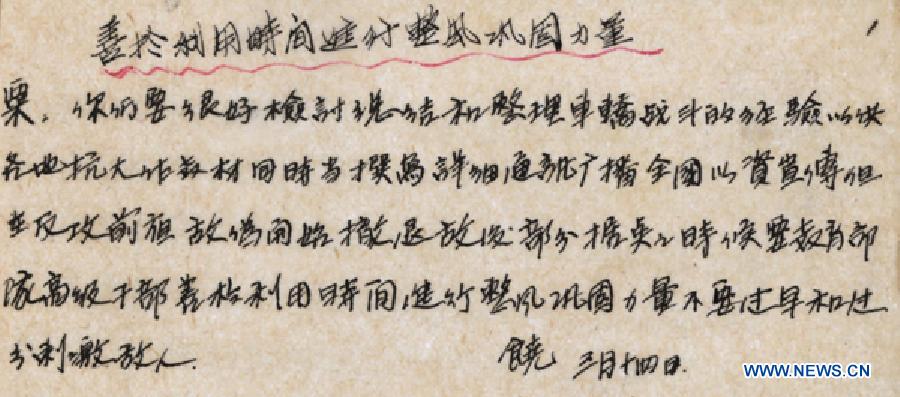 善於利用時間進行整风巩固力量
粟，你们要很好檢討總结和整理車橋战斗的经驗以供
各地抗大作教材同時当撰寫詳细通訊广播全國以資宣傳但
在反攻前夜敌偽開始撤退敌後部分据点之時候要教育部
隊高级干部善於利用時間進行整风巩固力量不要过早和过
分刺激敌人.
饒 三月十四日.
WWW.NEWS.CN